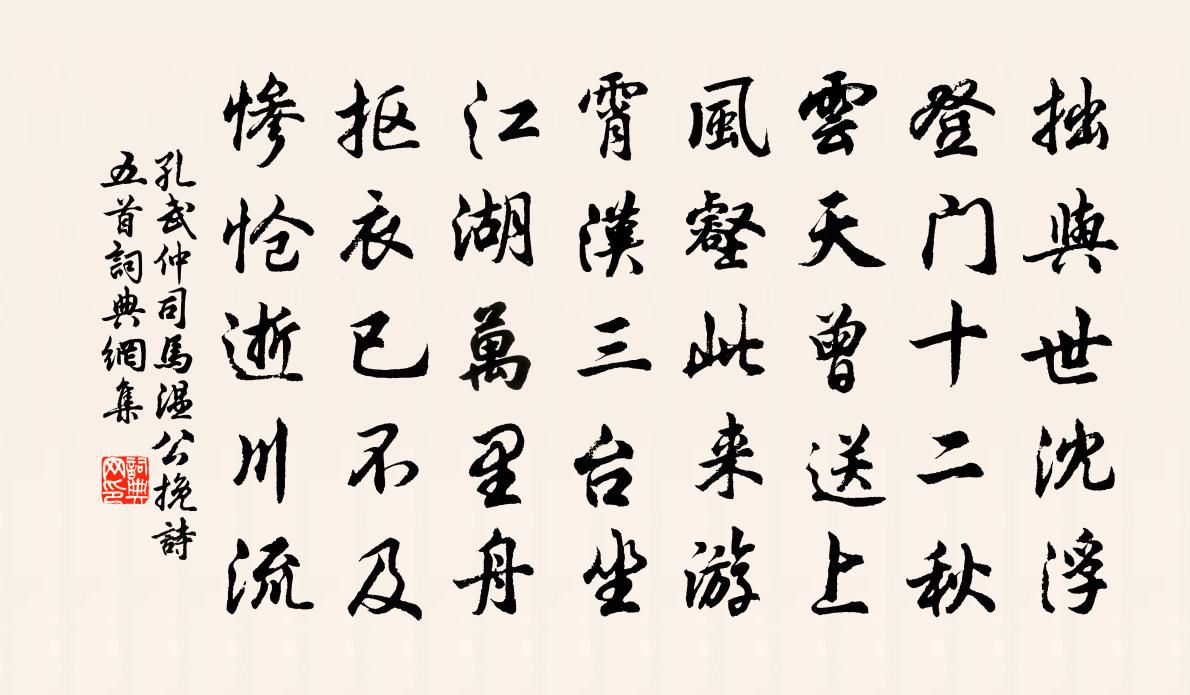 拙與世沈浮
登门十二秋
雲天曾送上
風壑此来游
霄漢三台坐
江湖萬里舟
抠衣已不及
慘怆逝川流
孔武仲司馬温公挽詩
五首詞典網集
詞典網印